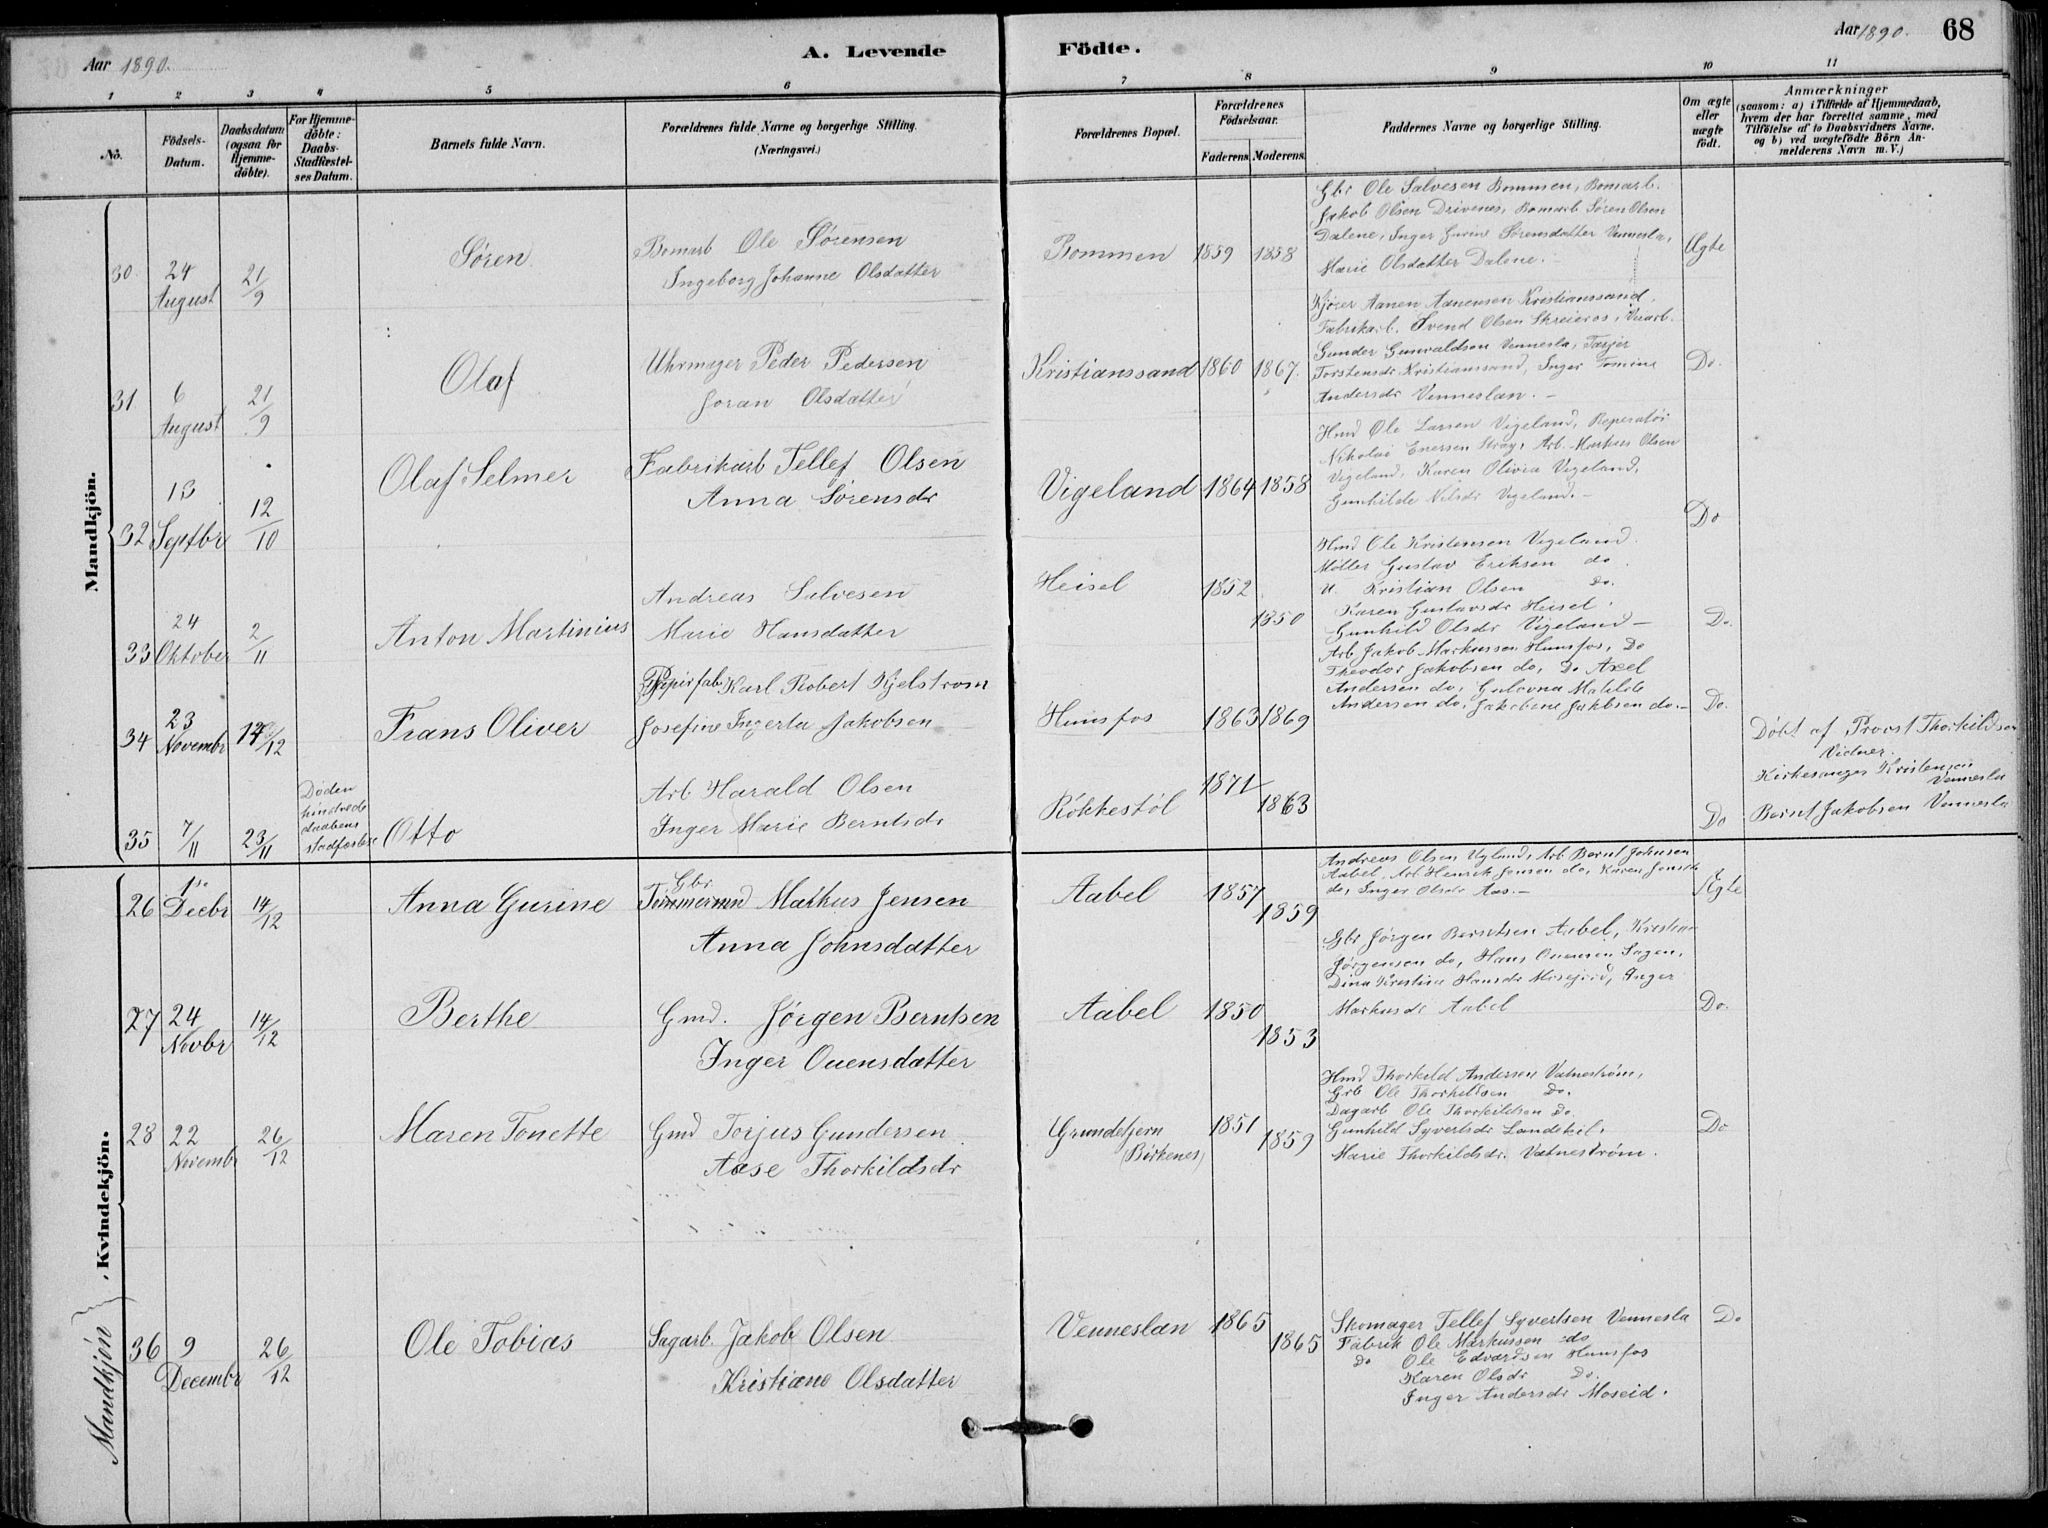 Aar 1890.
A. Levende
Födte.
Aar 1890.
68
1
2
3
4
5
6
7
8
9
10
11
No.
Födsels-
Datum.
Daabsdatum
(ogsaa for
Hjemme-
döbte).
For Hjemme-
döbte:
Daabs-
Stadfæstel-
ses Datum.
Barnets fulde Navn.
Forældrenes fulde Navne og borgerlige Stilling.
(Næringsvei.)
Forældrenes Bopæl.
Forældrenes
Födselsaar.
Faderens.
Moderens.
Faddernes Navne og borgerlige Stilling.
Om ægte
eller
uægte
födt.
Anmærkninger
(saasom: a) i Tilfælde af Hjemmedaab,
hvem der har forrettet samme, med
Tilföielse af to Daabsvidners Navne.
og b) ved uægtefödte Börn An-
melderens Navn m. V.)
Mandkjön.
30
24
August
21/9
Søren
Bomarb Ole Sørensen
Ingeborg Johanne Olsdatter
Bommen
1859
1858
Gbr Ole Salvesen Bommen, Bomarb.
Jakob Olsen Drivenes, Bomarb Søren Olsen
Dalene, Inger Gurine Sørensdatter Vennesla,
Marie Olsdatter Dalene.
Ægte
31
6
August
21/9
Olaf
Uhrmager Peder Pedersen
Joran Olsdatter
Kristianssand
1860
1867.
Kjører Aanen Aanensen Kristianssand,
Fabrikarb. Svend Olsen Skreieros,
Gunder Gunvaldsen Vennesla, Tarjer
Torstensdr Kristianssand, Inger Tomine
Andersdr Venneslan.
Do.
32
13
Septbr
12/10
Olaf Selmer
Fabrikarb Tellef Olsen
Anna Sørensdr
Vigeland
1864
1858
Hmd Ole Larsen Vigeland, Reperatør
Nikolai Enersen Strai, Arb. Markus Olsen
Vigeland, Karen Olivia Vigeland,
Gunhilde Nilsdr Vigeland.
Do
33
24
Oktober
2/11
Anton Martinius
Andreas Salvesen
Marie Hansdatter
Heisel
1852
1850
Hmd Ole Kristensen Vigeland.
Møller Gustav Eriksen do.
U. Kristian Olsen do.
Karen Gustavsdr Heisel.
Gunhild Olsdr Vigeland
Do.
34
23
Novembr
14/12
Frans Oliver
Papirfab. Karl Robert Kjelstrom
Josefine Ingerta Jakobsen
Hunsfos
1863
1869
Arb Jakob Markussen Hunsfos, Do
Theodor Jakobsen do, Do Axel
Andersen do, Gulovna Matilde
Andersen do, Jakobine Jakobsen do.
Do.
35
7/11
23/11
Døden
hindrede
daabens
stadfæstelse
Otto
Arb Harald Olsen
Inger Marie Berntsdr
Røkkestøl
1871
1863
Do
Døbt af Provst Thorkildsen
Vidner.
Kirkesanger Kristensen
Vennesla
Bernt Jakobsen Vennesla
Kvindekjön.
26
1ste
Decbr
14/12
Anna Gurine
Gbr
Tømmermd Markus Jensen
Anna Johnsdatter
Aabel
1857
1859
Andreas Olsen Ugland, Arb Bernt Johnsen
Aabel, Arb Henrik Jensen do, Karen Jensdr
do, Inger Olsdr Aas.
Ægte
27
24
Novbr
14/12
Berthe
Gmd. Jørgen Berntsen
Inger Ouensdatter
Aabel
1850
1853
Gbr Jørgen Berntsen Aabel, Kristian
Jørgensen do, Hans Ouensen Sagen,
Dina Kristine Hansdr Mosejord, Inger
Markusdr Aabel
Do.
28
22
Novembr
26/12
Maren Tonette
Gmd Torjus Gundersen
Aase Thorkildsdr
Grundetjern
(Birkenes)
1851
1859
Hmd Thorkild Andersen Vatnestrøm,
Grb Ole Thorkildsen Do.
Dagarb Ole Thorkildsen Do.
Gunhild Syvertsdr Landekil.
Marie Thorkildsdr. Vatnestrøm.
Do
Mandkjøn
36
9
Decembr
26/12
Ole Tobias
Sagarb. Jakob Olsen
Kristiane Olsdatter
Venneslan
1865
1865
Skomager Tellef Syvertsen Vennesla
Fabrik Ole Markussen do
Do Ole Edvardsen Hunsfos
Karen Olsdr Do.
Inger Andersdr Moseid.
Do